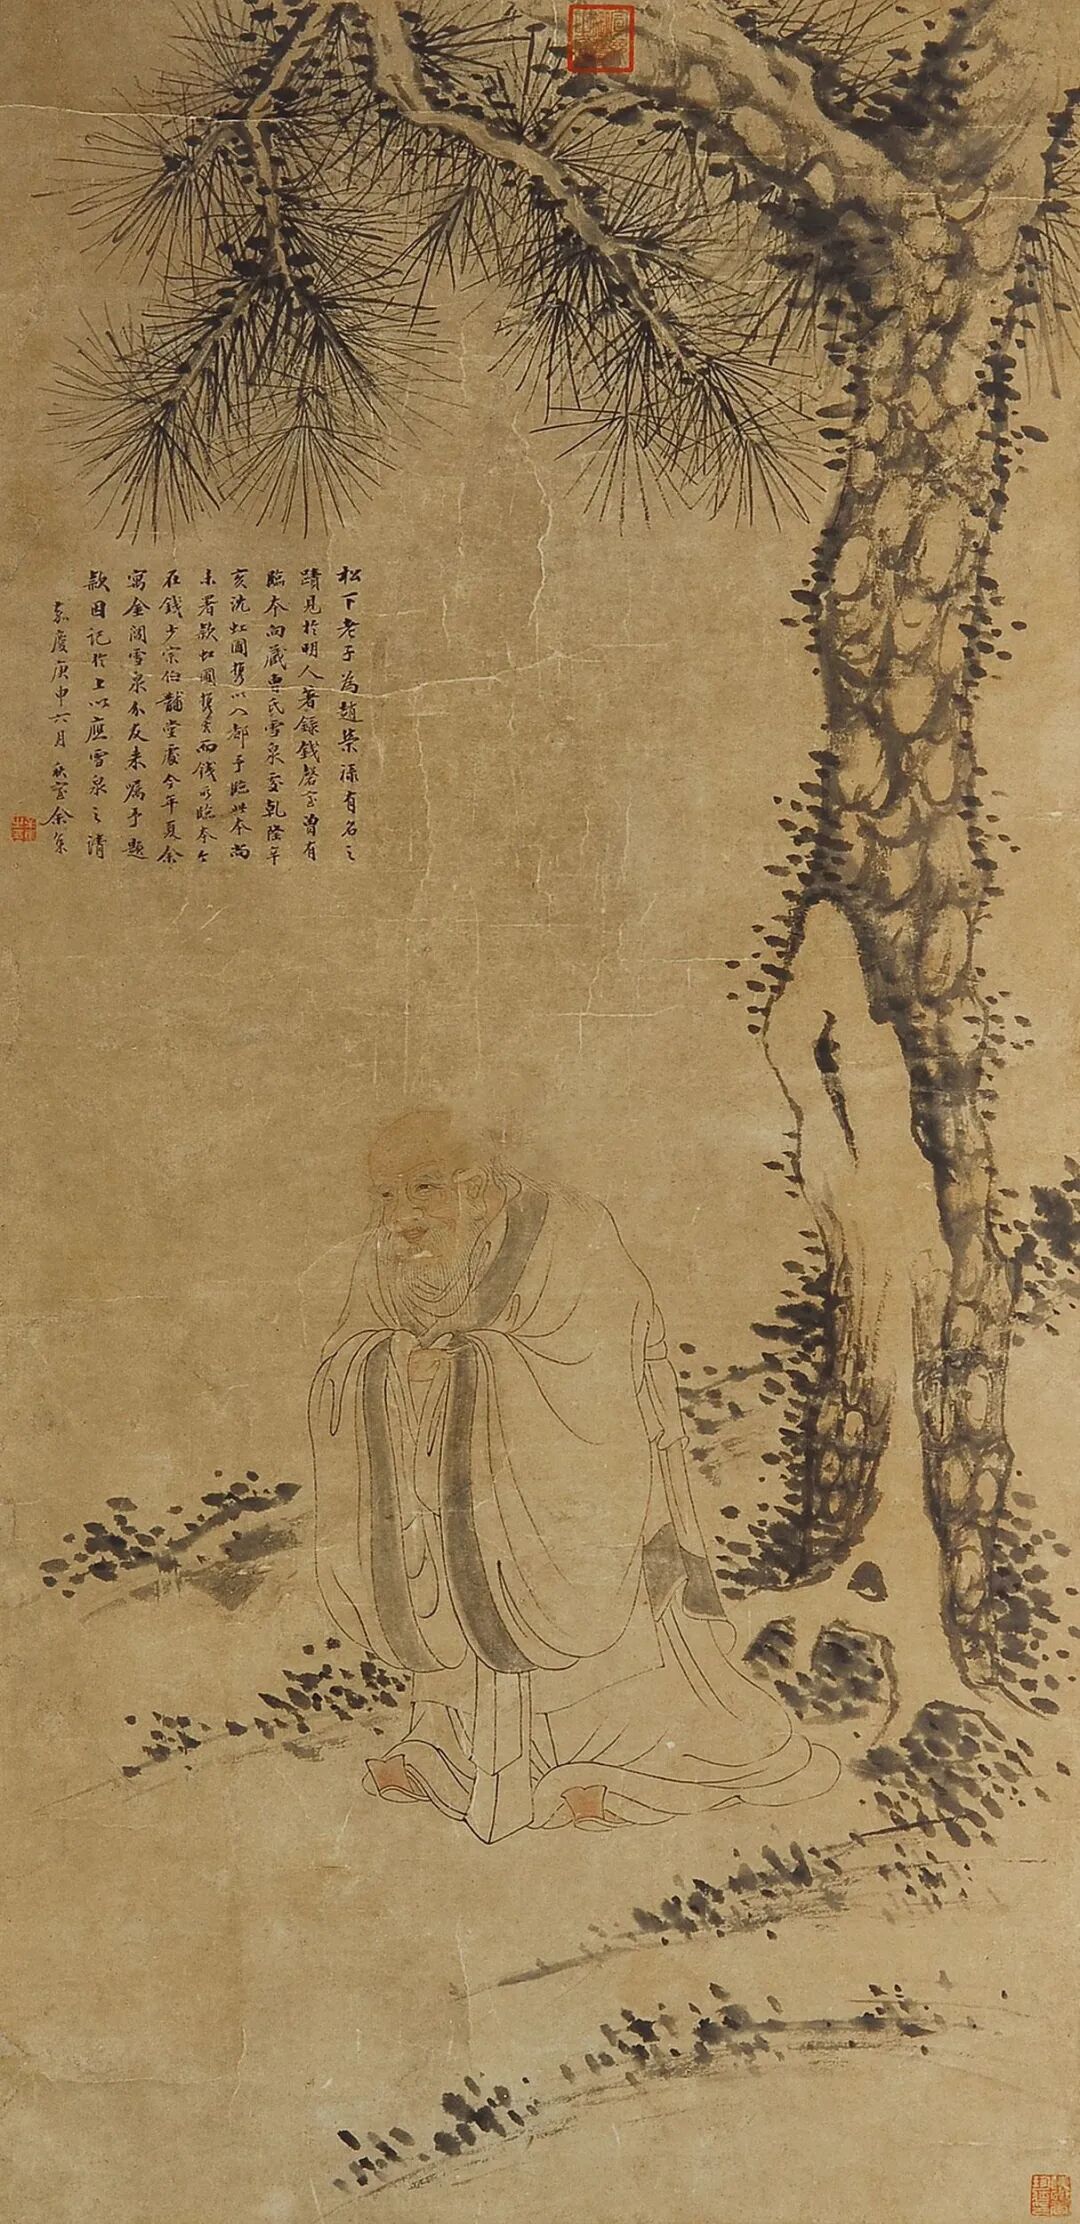 松下老子為趙榮祿有名之
蹟見於明人著錄錢磬室曾有
臨本向藏曹氏雪泉處乾隆辛
亥沈虹圃攜以入都予臨此本尚
未署款虹圃攜去而錢氏臨本今
在錢少宗伯黼堂處今年夏余
寓金閶雪泉分友來屬予題
款因記於上以應雪泉之清
嘉慶庚申六月秋室余集